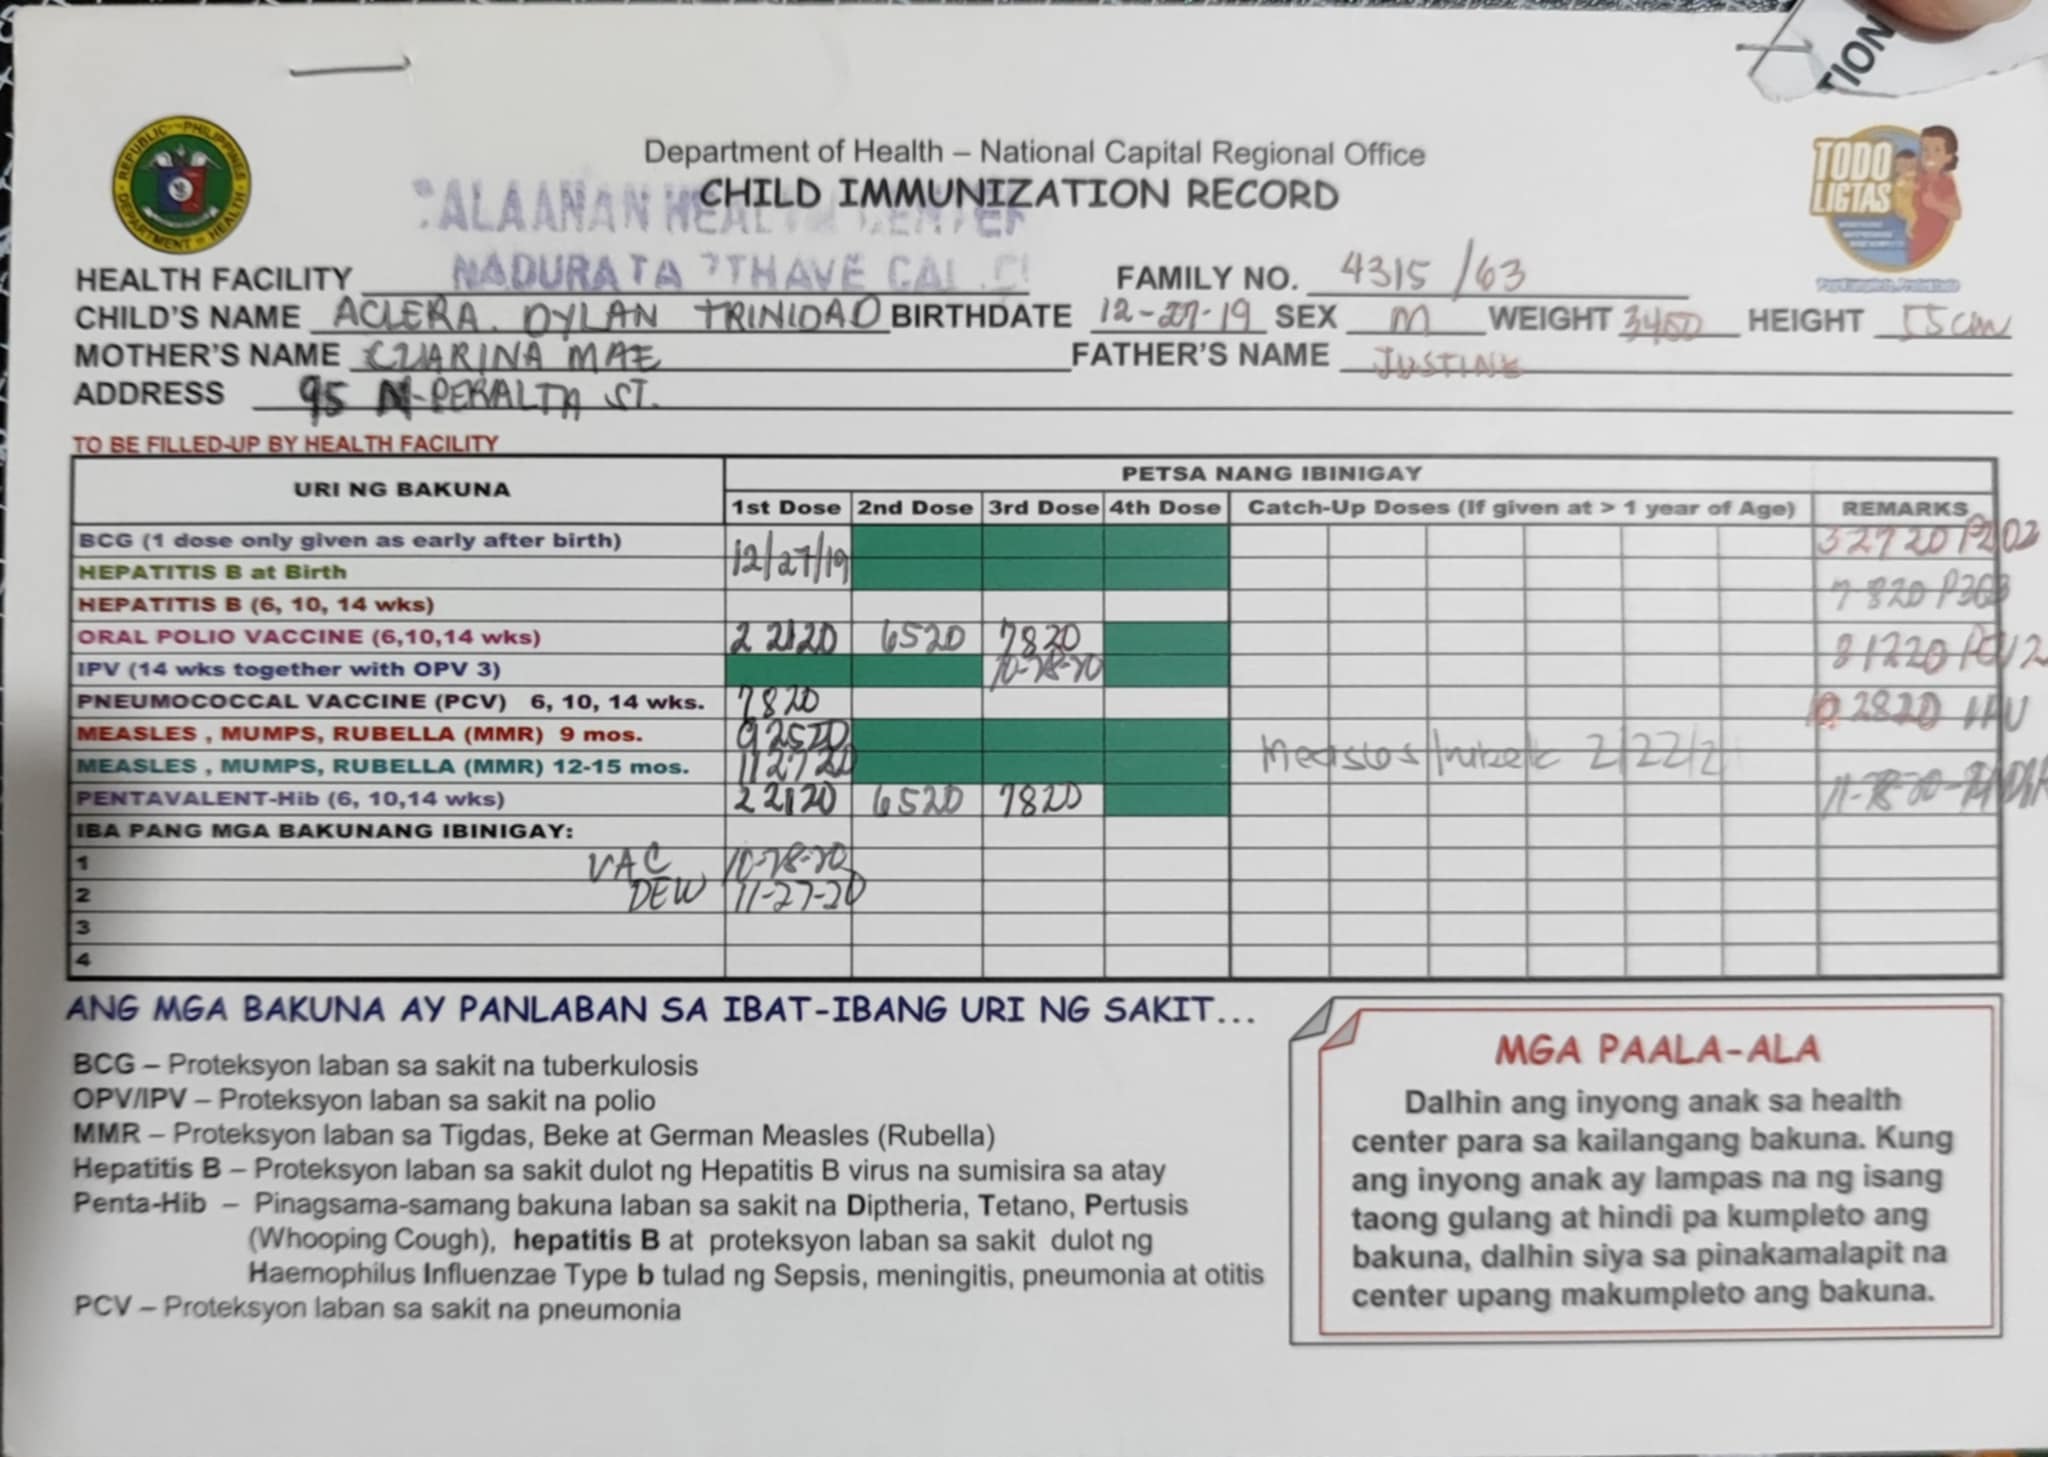 TION
REPUBLIC PHILIPPINE DEPARTMENT OF HEALTH
TODO LIGTAS
Department of Health – National Capital Regional Office
CHILD IMMUNIZATION RECORD
ALAANAN HEALTH CENTER
NADURATA 7TH AVE CAL
HEALTH FACILITY FAMILY NO. 4315 / 63
CHILD'S NAME ACLERA. DYLAN TRINIDAD BIRTHDATE 12-27-19 SEX M WEIGHT 3400 HEIGHT 55cm
MOTHER'S NAME CZARINA MAE FATHER'S NAME JUSTINE
ADDRESS 95 N-PERALTA ST.
TO BE FILLED-UP BY HEALTH FACILITY
URI NG BAKUNA PETSA NANG IBINIGAY
1st Dose 2nd Dose 3rd Dose 4th Dose Catch-Up Doses (If given at > 1 year of Age) REMARKS
BCG (1 dose only given as early after birth) 12/27/19 32720
HEPATITIS B at Birth
HEPATITIS B (6, 10, 14 wks) 7 820
ORAL POLIO VACCINE (6,10,14 wks) 2 2120 6520 7820 81220 PCV2
IPV (14 wks together with OPV 3) 10-28-20
PNEUMOCOCCAL VACCINE (PCV) 6, 10, 14 wks. 7820 10 2820
MEASLES , MUMPS, RUBELLA (MMR) 9 mos. 92520 Measles 2/22/2
MEASLES , MUMPS, RUBELLA (MMR) 12-15 mos. 112720
PENTAVALENT-Hib (6, 10,14 wks) 2 2120 6520 7820
IBA PANG MGA BAKUNANG IBINIGAY:
1 VAC 10-28-20
2 DEW 11-27-20
3
4
ANG MGA BAKUNA AY PANLABAN SA IBAT-IBANG URI NG SAKIT...
BCG – Proteksyon laban sa sakit na tuberkulosis
OPV/IPV – Proteksyon laban sa sakit na polio
MMR – Proteksyon laban sa Tigdas, Beke at German Measles (Rubella)
Hepatitis B – Proteksyon laban sa sakit dulot ng Hepatitis B virus na sumisira sa atay
Penta-Hib – Pinagsama-samang bakuna laban sa sakit na Diptheria, Tetano, Pertusis
(Whooping Cough), hepatitis B at proteksyon laban sa sakit dulot ng
Haemophilus Influenzae Type b tulad ng Sepsis, meningitis, pneumonia at otitis
PCV – Proteksyon laban sa sakit na pneumonia
MGA PAALA-ALA
Dalhin ang inyong anak sa health
center para sa kailangang bakuna. Kung
ang inyong anak ay lampas na ng isang
taong gulang at hindi pa kumpleto ang
bakuna, dalhin siya sa pinakamalapit na
center upang makumpleto ang bakuna.